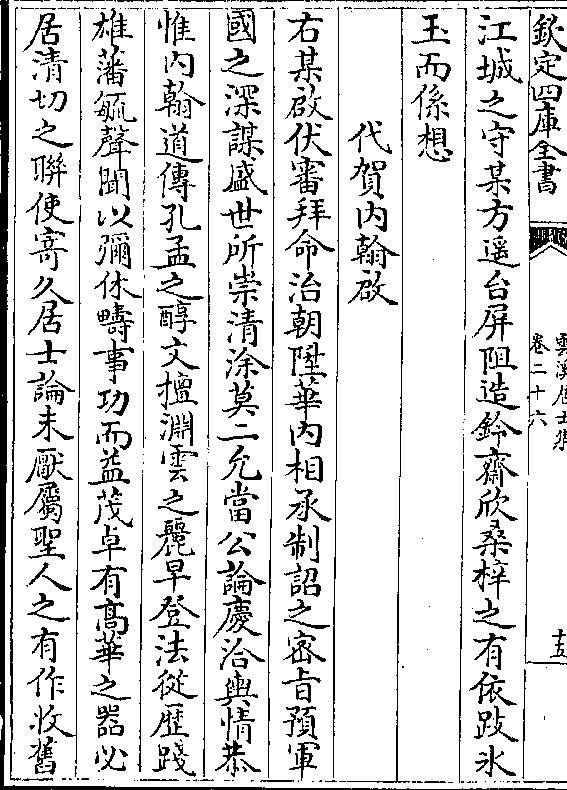 欽定四庫全書
雲溪居士集
卷二十六
十五
江城之守某方遥台屏阻造鈴齋欣桑梓之有依跂氷
玉而係想
代賀内翰啟
右某啟伏審拜命治朝陞華内相承制詔之密旨預軍
國之深謀盛世所崇清涂莫二允當公論慶洽輿情恭
惟内翰道傳孔孟之醇文擅淵雲之麗早登法從歴踐
雄藩毓聲聞以彌休疇事功而益茂卓有髙華之器必
居清切之聨使寄久居士論未厭屬聖人之有作收舊